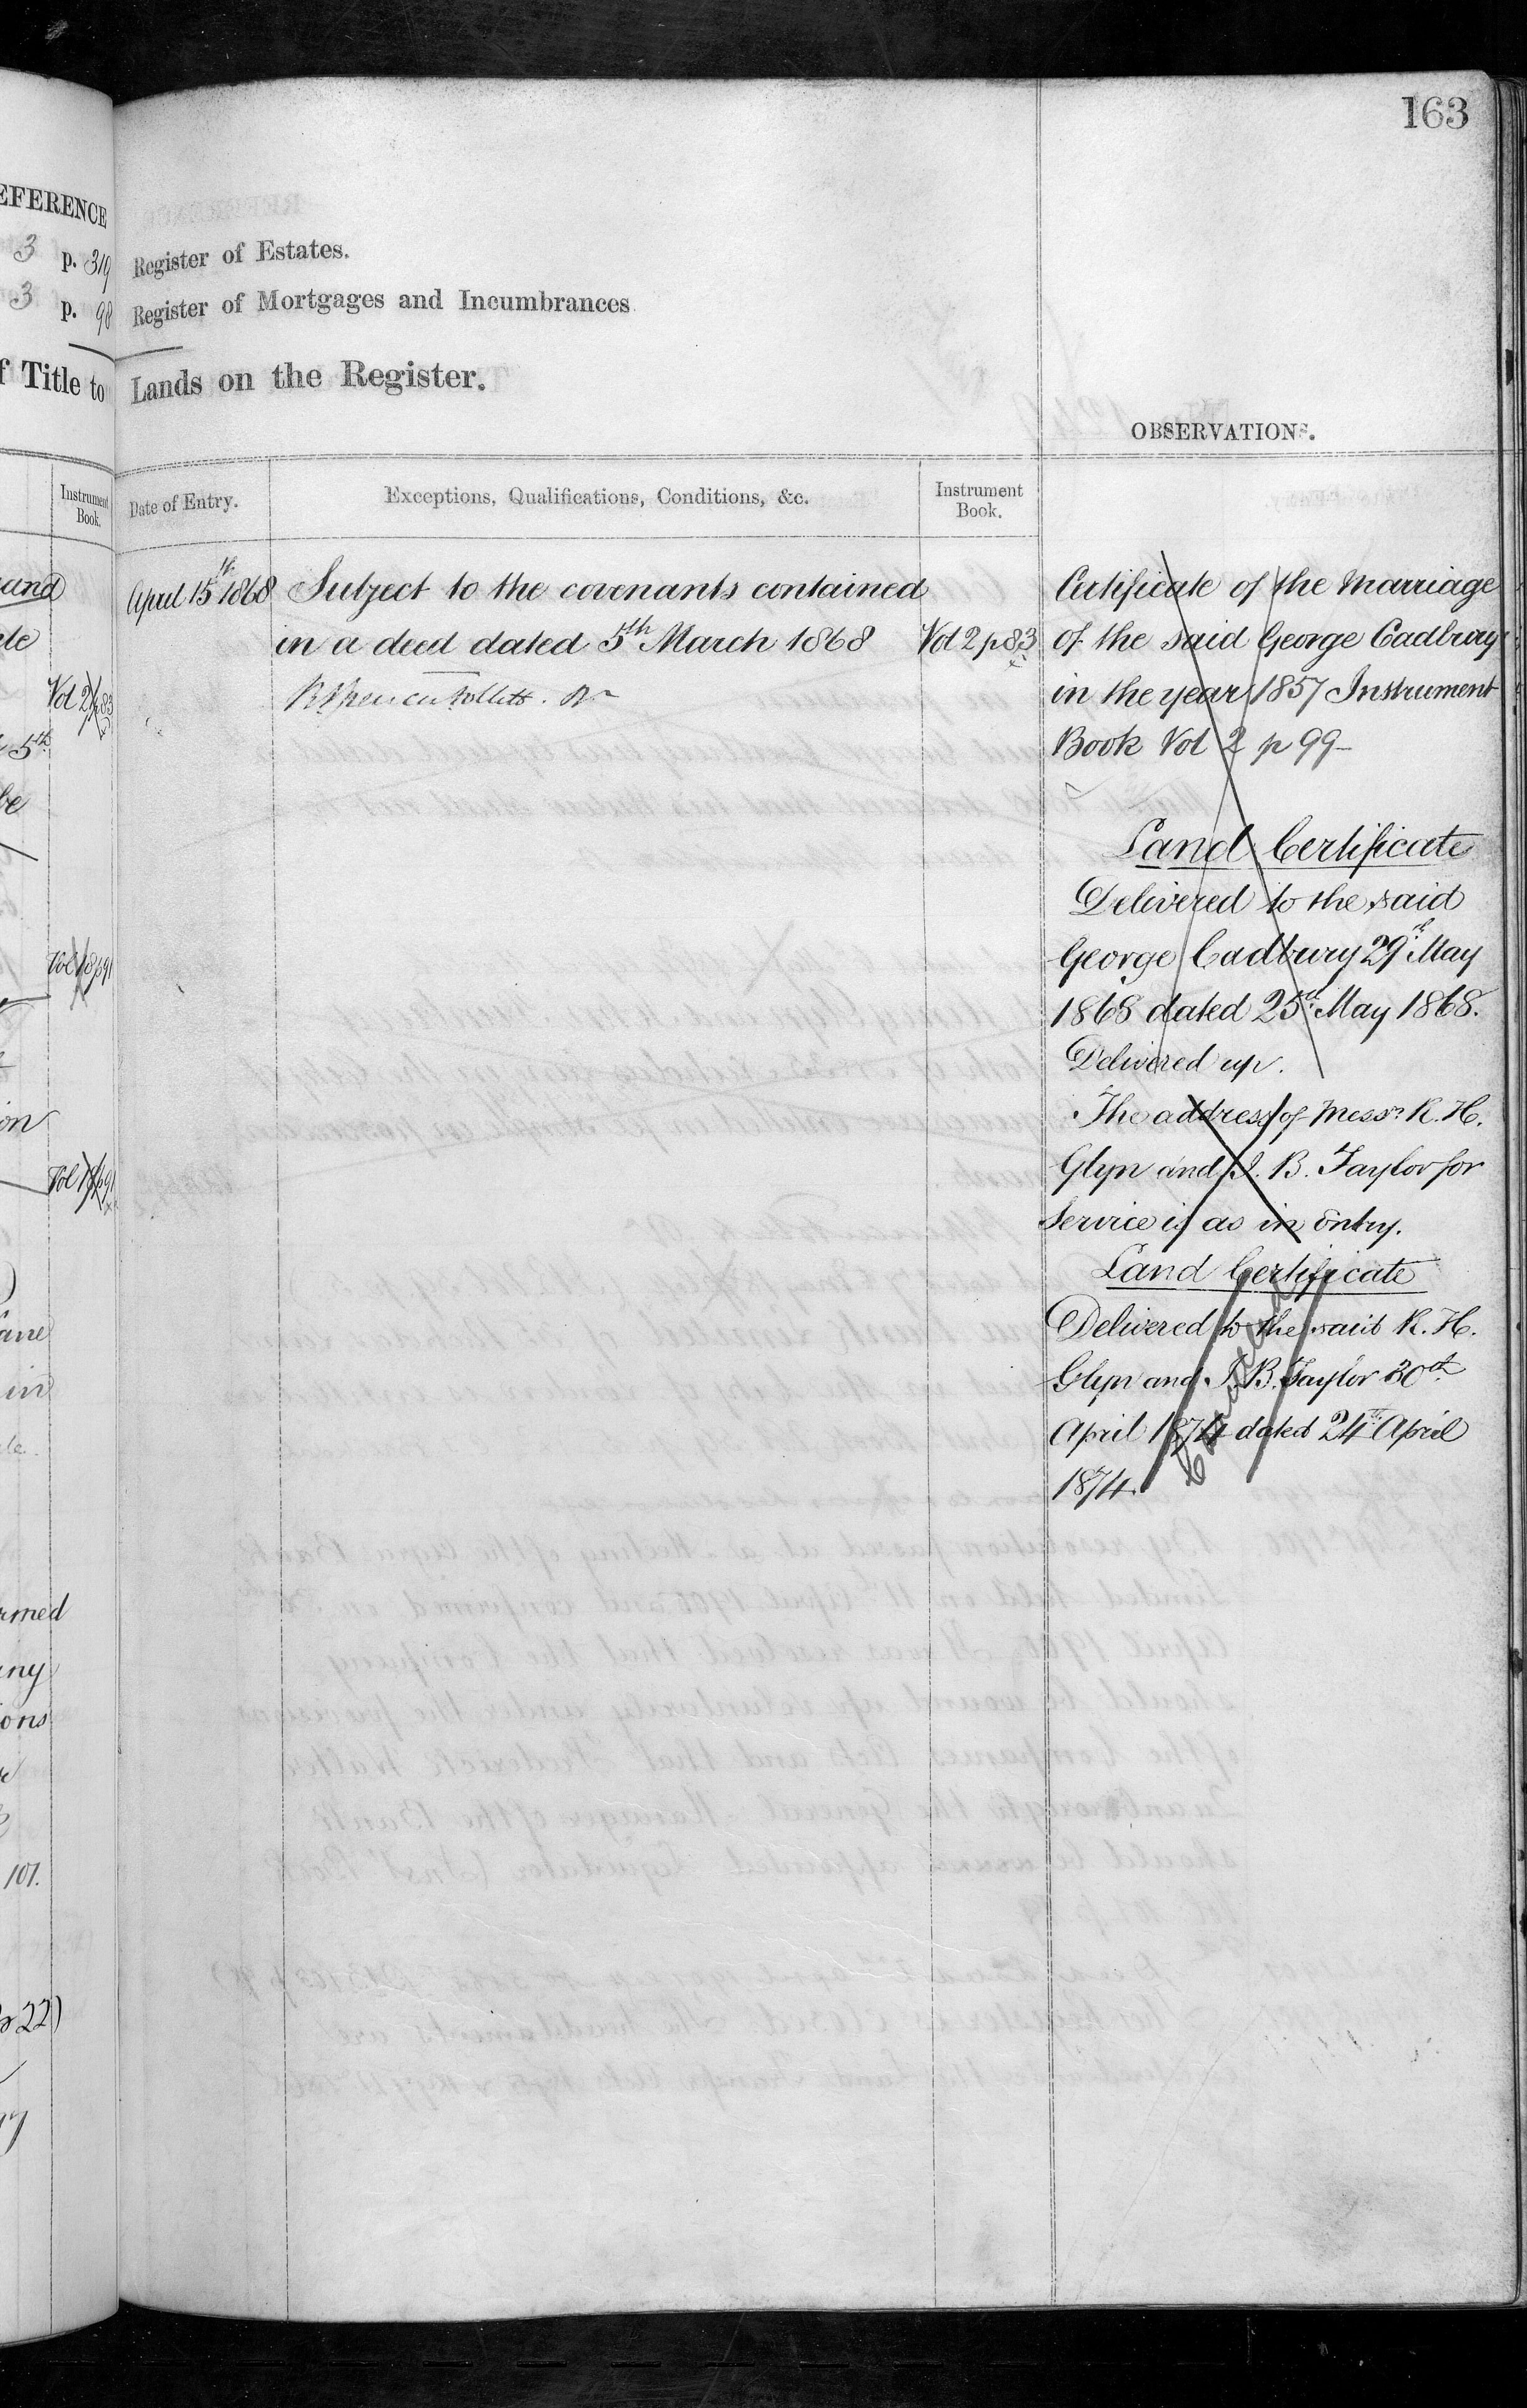 163
EFERENCE
3 p. 319
Register of Estates.
3 p. 98
Register of Mortgages and Incumbrances
f Title to
Lands on the Register.
OBSERVATIONS.
Instrument Book.
Date of Entry.
Exceptions, Qualifications, Conditions, &c.
Instrument Book.
and
de
Vol 2 p 83
5th
be
Vol 18 p 91
on
Vol 18 p 91
ane
in
de.
rmed
any
ons
107.
22)
April 15th 1868
Subject to the covenants contained
in a deed dated 5th March 1868
Vol 2 p 83
Certificate of the Marriage
of the said George Cadbury
in the year 1857 Instrument
Book Vol 2 p 99–
Land Certificate
Delivered to the said
George Cadbury 29th May
1868 dated 25th May 1868.
Delivered up.
The address of Messrs R. H.
Glyn and J. B. Taylor for
Service is as in Entry.
Land Certificate
Delivered to the said R. H.
Glyn and J. B. Taylor 30th
April 1874 dated 24th April
1874.
Cancelled